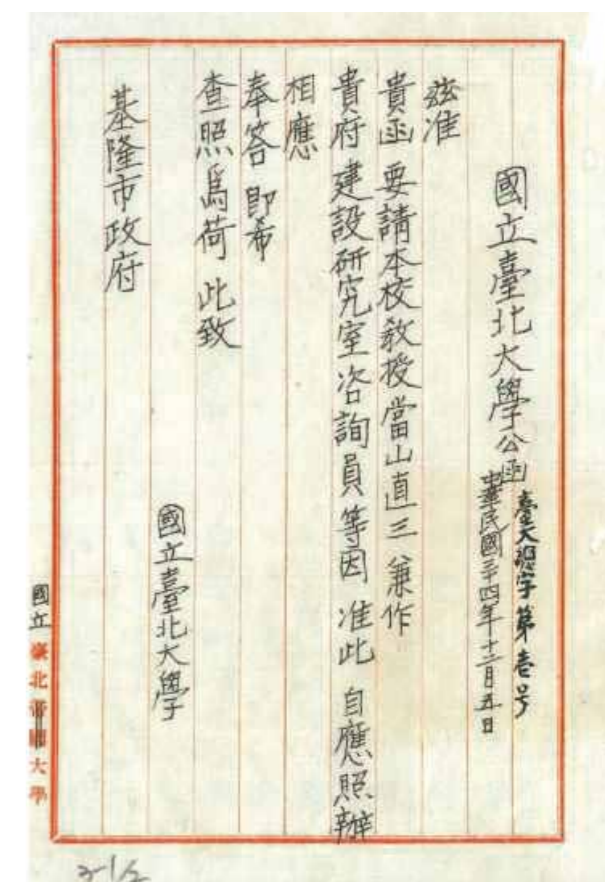 國立臺北大學公函
臺大總字第壱号
中華民國三十四年十二月五日
茲准
貴函 要請本校教授當山直三 兼作
貴府 建設研究室咨詢員等因 准此 自應照辦
相應
奉答 即希
查照為荷 此致
國立臺北大學
基隆市政府
國立臺北帝國大學